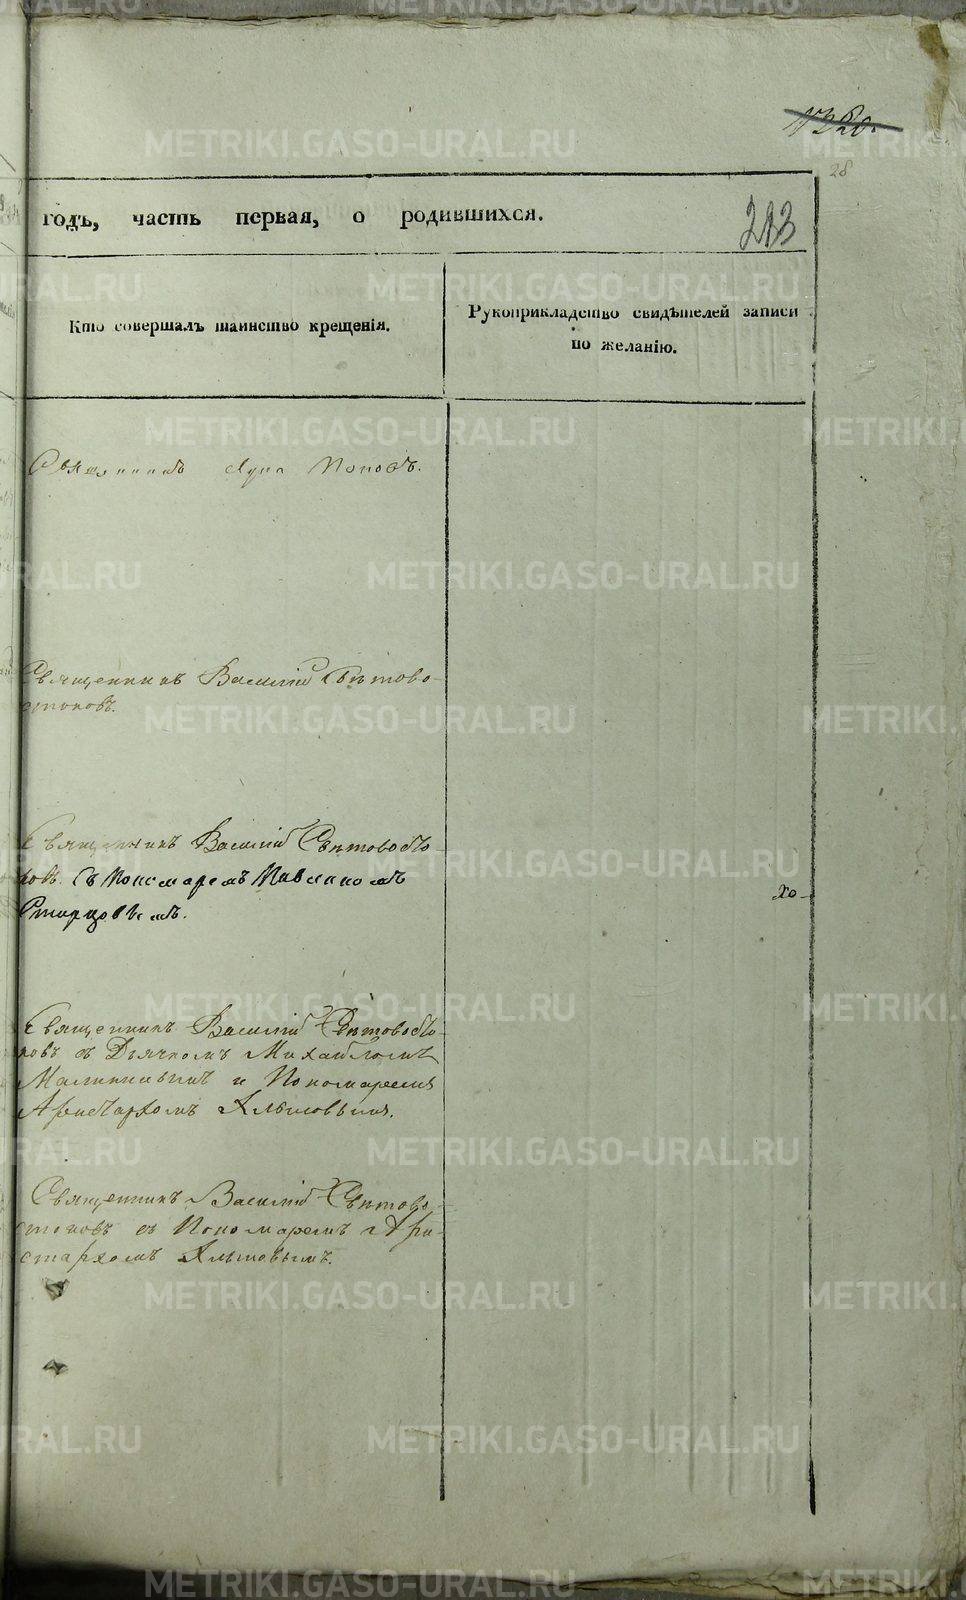 28
годъ, часть первая, о родившихся.
213
Кто совершалъ таинство крещенія.
Рукоприкладство свидѣтелей записи
по желанію.
Священникъ Лука Поповъ.
Священникъ Василій Свѣтово-
стоковъ.
Священникъ Василій Свѣтовосто-
ковъ съ Пономаремъ Павлиномъ
Старцовымъ.
Священникъ Василій Свѣтовосто-
ковъ съ Дьячкомъ Михайломъ
Малининымъ и Пономаремъ
Аристархомъ Хлыновымъ.
Священникъ Василій Свѣтово-
стоковъ съ Пономаремъ Ари-
стархомъ Хлыновымъ.
хо-
METRIKI.GASO-URAL.RU